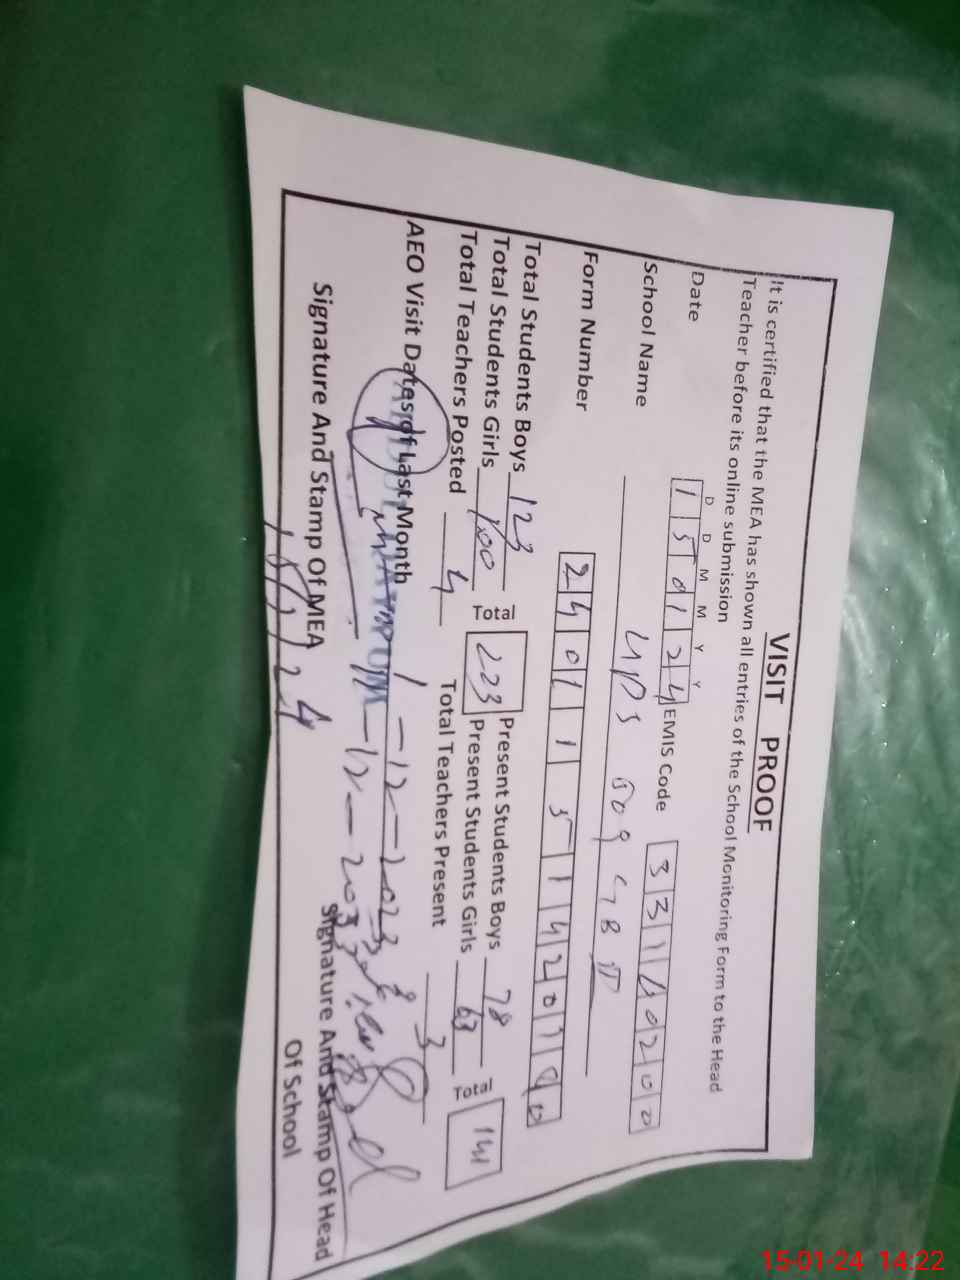 VISIT PROOF
It is certified that the MEA has shown all entries of the School Monitoring Form to the Head
Teacher before its online submission
D D M M Y Y
Date 15 01 24 EMIS Code 33110200
School Name GPS 509 GB II
Form Number
Total Students Boys 123 Total 223 Present Students Boys 78 Total 141
Total Students Girls 100 Present Students Girls 63
Total Teachers Posted 4 Total Teachers Present 3
AEO Visit Dates of Last Month 1-12-2023 &
-12-2023
Signature And Stamp Of MEA Signature And Stamp Of Head
Of School
15/1/24
15-01-24 14:22